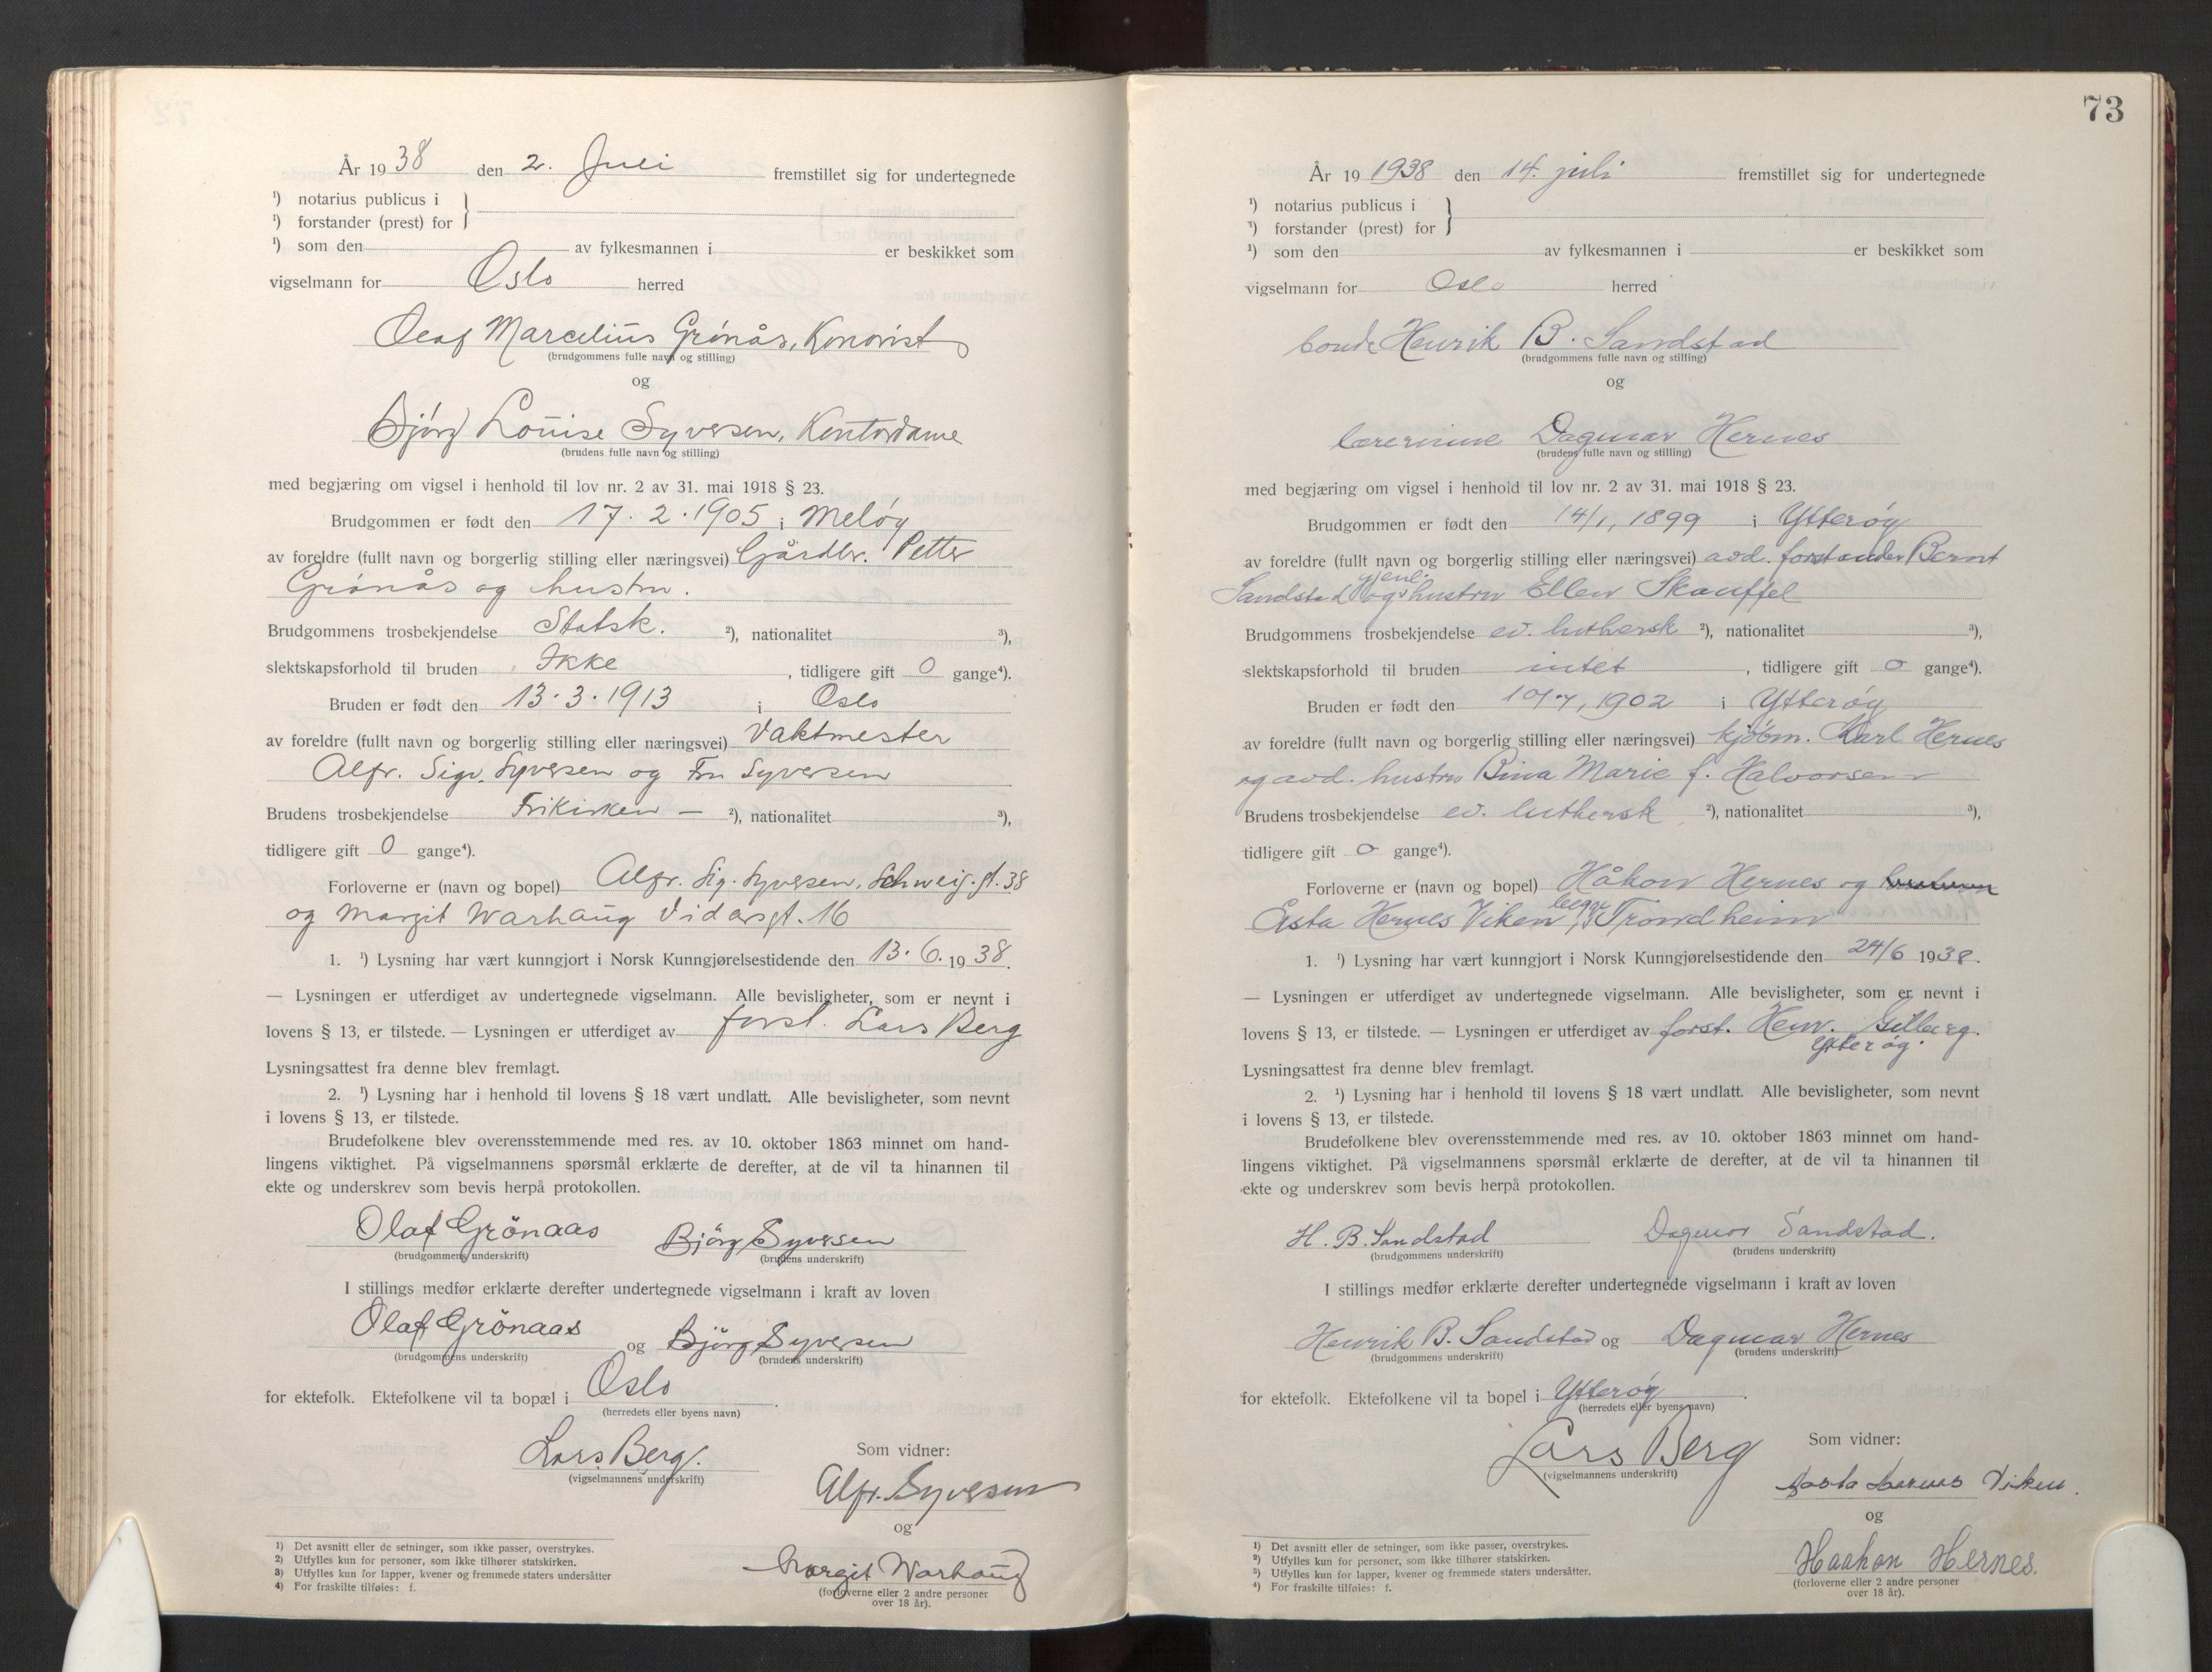 År 1938 den 2. Juli fremstillet sig for undertegnede
¹) notarius publicus i
¹) forstander (prest) for
¹) som den av fylkesmannen i er beskikket som
vigselmann for Oslo herred
Olaf Marcelius Grönås, Kononist
(brudgommens fulle navn og stilling)
og
Bjørg Louise Syversen, Kontordame
(brudens fulle navn og stilling)
med begjæring om vigsel i henhold til lov nr. 2 av 31. mai 1918 § 23.
Brudgommen er født den 17.2.1905 i Meløy
av foreldre (fullt navn og borgerlig stilling eller næringsvei) Gårdbr. Petter
Grönås og hustru.
Brudgommens trosbekjendelse Statsk. ²), nationalitet ³),
slektskapsforhold til bruden Ikke, tidligere gift 0 gange⁴).
Bruden er født den 13.3.1913 i Oslo
av foreldre (fullt navn og borgerlig stilling eller næringsvei) Vaktmester
Alfr. Sigv. Syversen og Fru Syversen
Brudens trosbekjendelse Frikirken — ²), nationalitet ³),
tidligere gift 0 gange⁴).
Forloverne er (navn og bopel) Alfr. Sig. Syversen, Schweig. gt. 38
og Margit Warhaug Vidarsgt. 16
1. ¹) Lysning har vært kunngjort i Norsk Kunngjørelsestidende den 13.6.1938.
— Lysningen er utferdiget av undertegnede vigselmann. Alle bevisligheter, som er nevnt i
lovens § 13, er tilstede. — Lysningen er utferdiget av forst. Lars Berg
Lysningsattest fra denne blev fremlagt.
2. ¹) Lysning har i henhold til lovens § 18 vært undlatt. Alle bevisligheter, som nevnt
i lovens § 13, er tilstede.
Brudefolkene blev overensstemmende med res. av 10. oktober 1863 minnet om hand-
lingens viktighet. På vigselmannens spørsmål erklærte de derefter, at de vil ta hinannen til
ekte og underskrev som bevis herpå protokollen.
Olaf Grönaas Björg Syversen
(brudgommens underskrift) (brudens underskrift)
I stillings medfør erklærte derefter undertegnede vigselmann i kraft av loven
Olaf Grönaas og Björg Syversen
(brudgommens underskrift) (brudens underskrift)
for ektefolk. Ektefolkene vil ta bopæl i Oslo.
(herredets eller byens navn)
Lars Berg.
(vigselmannens underskrift)
Som vidner:
Alfr. Syversen
og
Margit Warhaug
(forloverne eller 2 andre personer
over 18 år).
1) Det avsnitt eller de setninger, som ikke passer, overstrykes.
2) Utfylles kun for personer, som ikke tilhører statskirken.
3) Utfylles kun for lapper, kvener og fremmede staters undersåtter
4) For fraskilte tilføies: f.
73
År 19 1938 den 14. juli fremstillet sig for undertegnede
¹) notarius publicus i
¹) forstander (prest) for
¹) som den av fylkesmannen i er beskikket som
vigselmann for Oslo herred
bonde Henrik B. Sandstad
(brudgommens fulle navn og stilling)
og
lærerinne Dagmar Hernes
(brudens fulle navn og stilling)
med begjæring om vigsel i henhold til lov nr. 2 av 31. mai 1918 § 23.
Brudgommen er født den 14/1, 1899 i Ytterøy
av foreldre (fullt navn og borgerlig stilling eller næringsvei) avd. forstander Bernt
Sandstad og gjenl. hustru Ellen Skauffel
Brudgommens trosbekjendelse ev. luthersk ²), nationalitet ³),
slektskapsforhold til bruden intet, tidligere gift 0 gange⁴).
Bruden er født den 10/7, 1902 i Ytterøy
av foreldre (fullt navn og borgerlig stilling eller næringsvei) kjøbm. Karl Hernes
og avd. hustru Bina Marie f. Halvorsen
Brudens trosbekjendelse ev. luthersk ²), nationalitet ³),
tidligere gift 0 gange⁴).
Forloverne er (navn og bopel) Håkon Hernes og
Asta Hernes Viken, begge Trondheim
1. ¹) Lysning har vært kunngjort i Norsk Kunngjørelsestidende den 24/6 1938.
— Lysningen er utferdiget av undertegnede vigselmann. Alle bevisligheter, som er nevnt i
lovens § 13, er tilstede. — Lysningen er utferdiget av forst. Henr. Gilberg.
Ytterøy.
Lysningsattest fra denne blev fremlagt.
2. ¹) Lysning har i henhold til lovens § 18 vært undlatt. Alle bevisligheter, som nevnt
i lovens § 13, er tilstede.
Brudefolkene blev overensstemmende med res. av 10. oktober 1863 minnet om hand-
lingens viktighet. På vigselmannens spørsmål erklærte de derefter, at de vil ta hinannen til
ekte og underskrev som bevis herpå protokollen.
H. B. Sandstad Dagmar Sandstad.
(brudgommens underskrift) (brudens underskrift)
I stillings medfør erklærte derefter undertegnede vigselmann i kraft av loven
Henrik B. Sandstad og Dagmar Hernes
(brudgommens underskrift) (brudens underskrift)
for ektefolk. Ektefolkene vil ta bopel i Ytterøy.
(herredets eller byens navn)
Lars Berg
(vigselmannens underskrift)
Som vidner:
Aasta Hernes Viken.
og
Haakon Hernes.
(forloverne eller 2 andre personer
over 18 år).
1) Det avsnitt eller de setninger, som ikke passer, overstrykes.
2) Utfylles kun for personer, som ikke tilhører statskirken.
3) Utfylles kun for lapper, kvener og fremmede staters undersåtter.
4) For fraskilte tilføies: f.